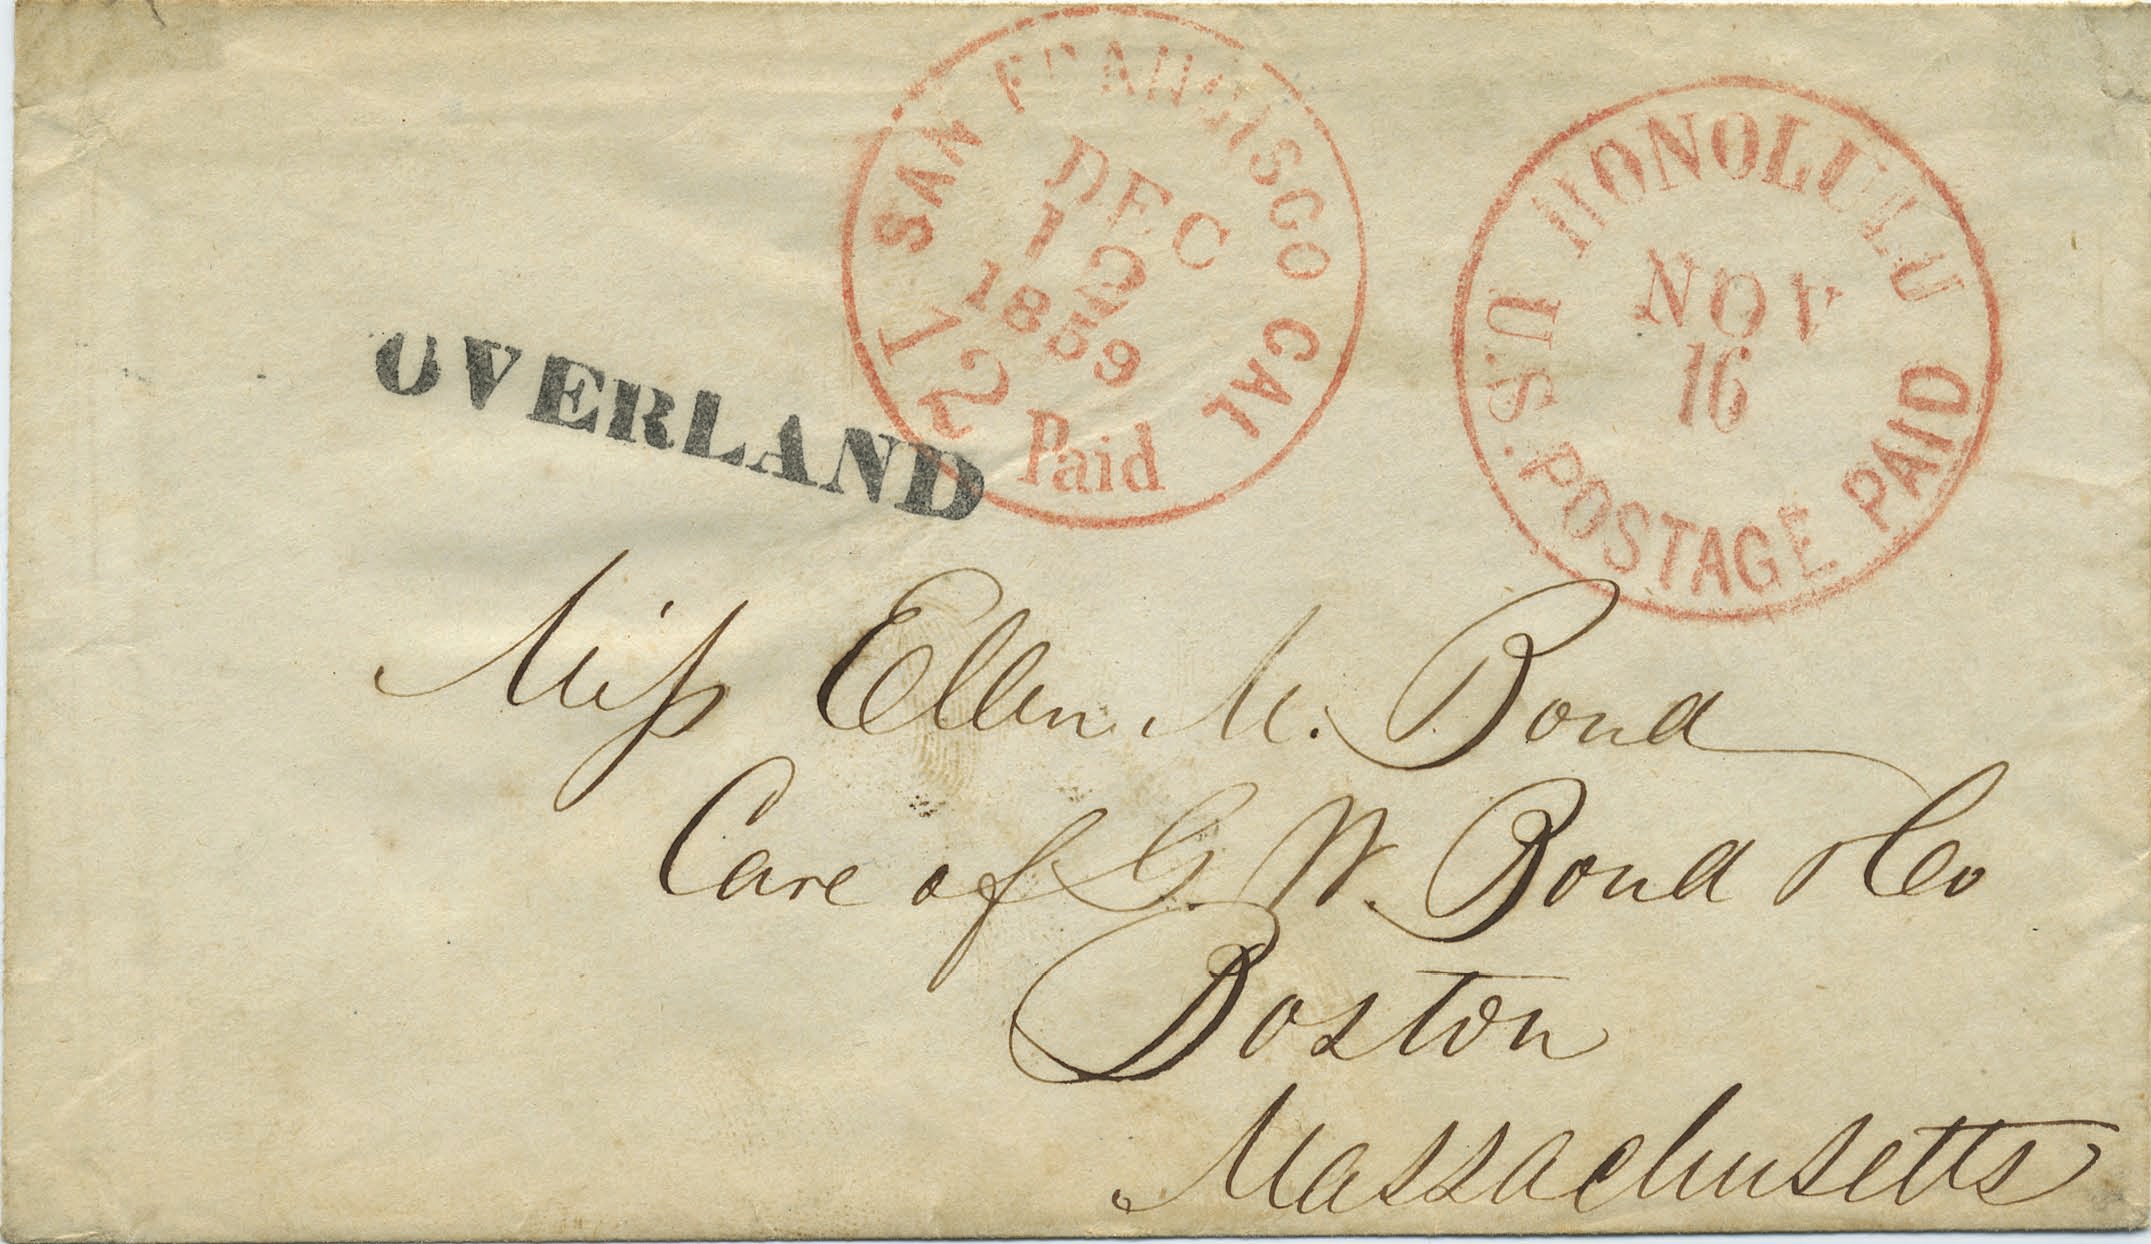 SAN FRANCISCO CAL
DEC
12
1859
12 Paid
HONOLULU
NOV
16
U.S. POSTAGE PAID
OVERLAND
Miss Ellen M. Bond
Care of G. W. Bond & Co
Boston
Massachusetts